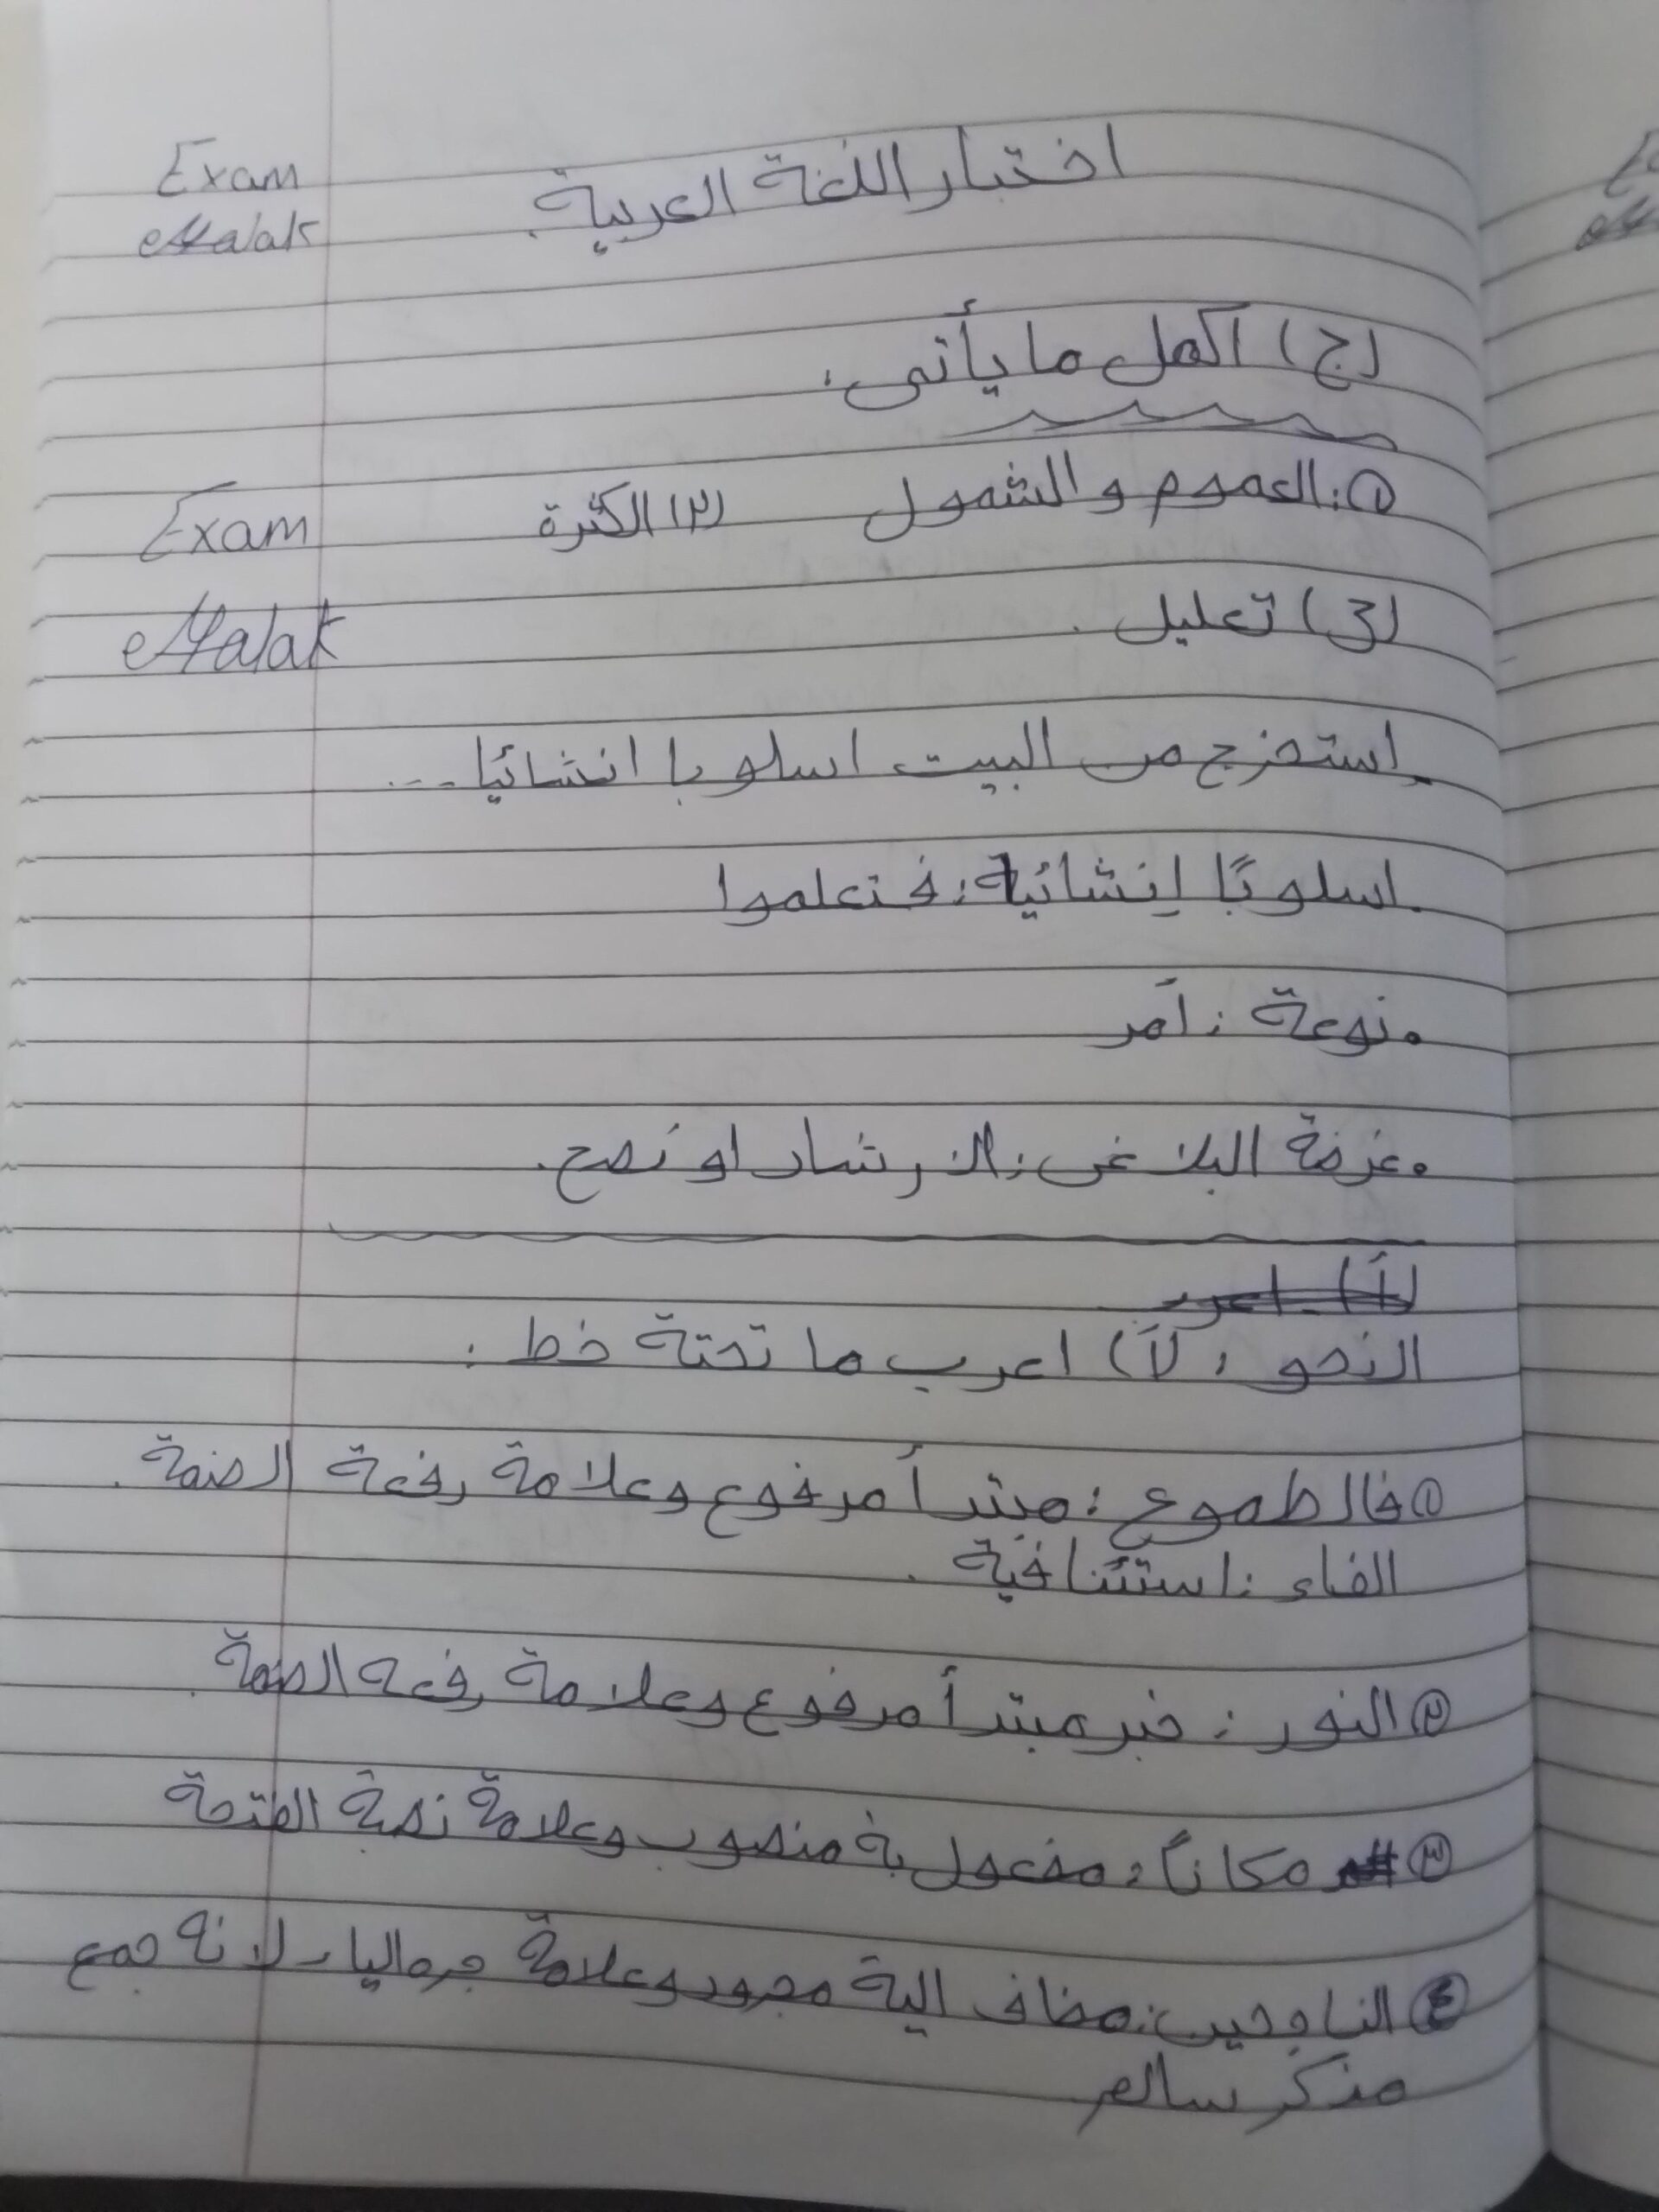 اختبار اللغة العربية.
Exam
Malak
(ج) اكمل ما يأتى:
①: العموم والشمول (٢) الكثرة
Exam
(3) تعليل.
Malak
.إستخرج من البيت اسلوبا انشائيا...
.اسلوبًا إنشائية: فتعلموا
.نوعة: أمر
.غرضة البلاغى: الارشاد او نصح.
(أ) اعرب
النحو: (أ) اعرب ما تحتة خط:
① فالطموع: مبتدأ مرفوع وعلامة رفعة الضمة.
الفاء: استئنافية.
② النور: خبر مبتدأ مرفوع وعلامة رفعه الضمة.
③ مكاناً: مفعول بة منصوب وعلامة نصبة الفتحة
④ الناجحين: مضاف الية مجرور وعلامة جره الياء لانة جمع
مذكر سالم